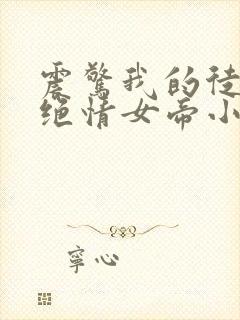 震惊我的徒
绝情女帝小
寧心